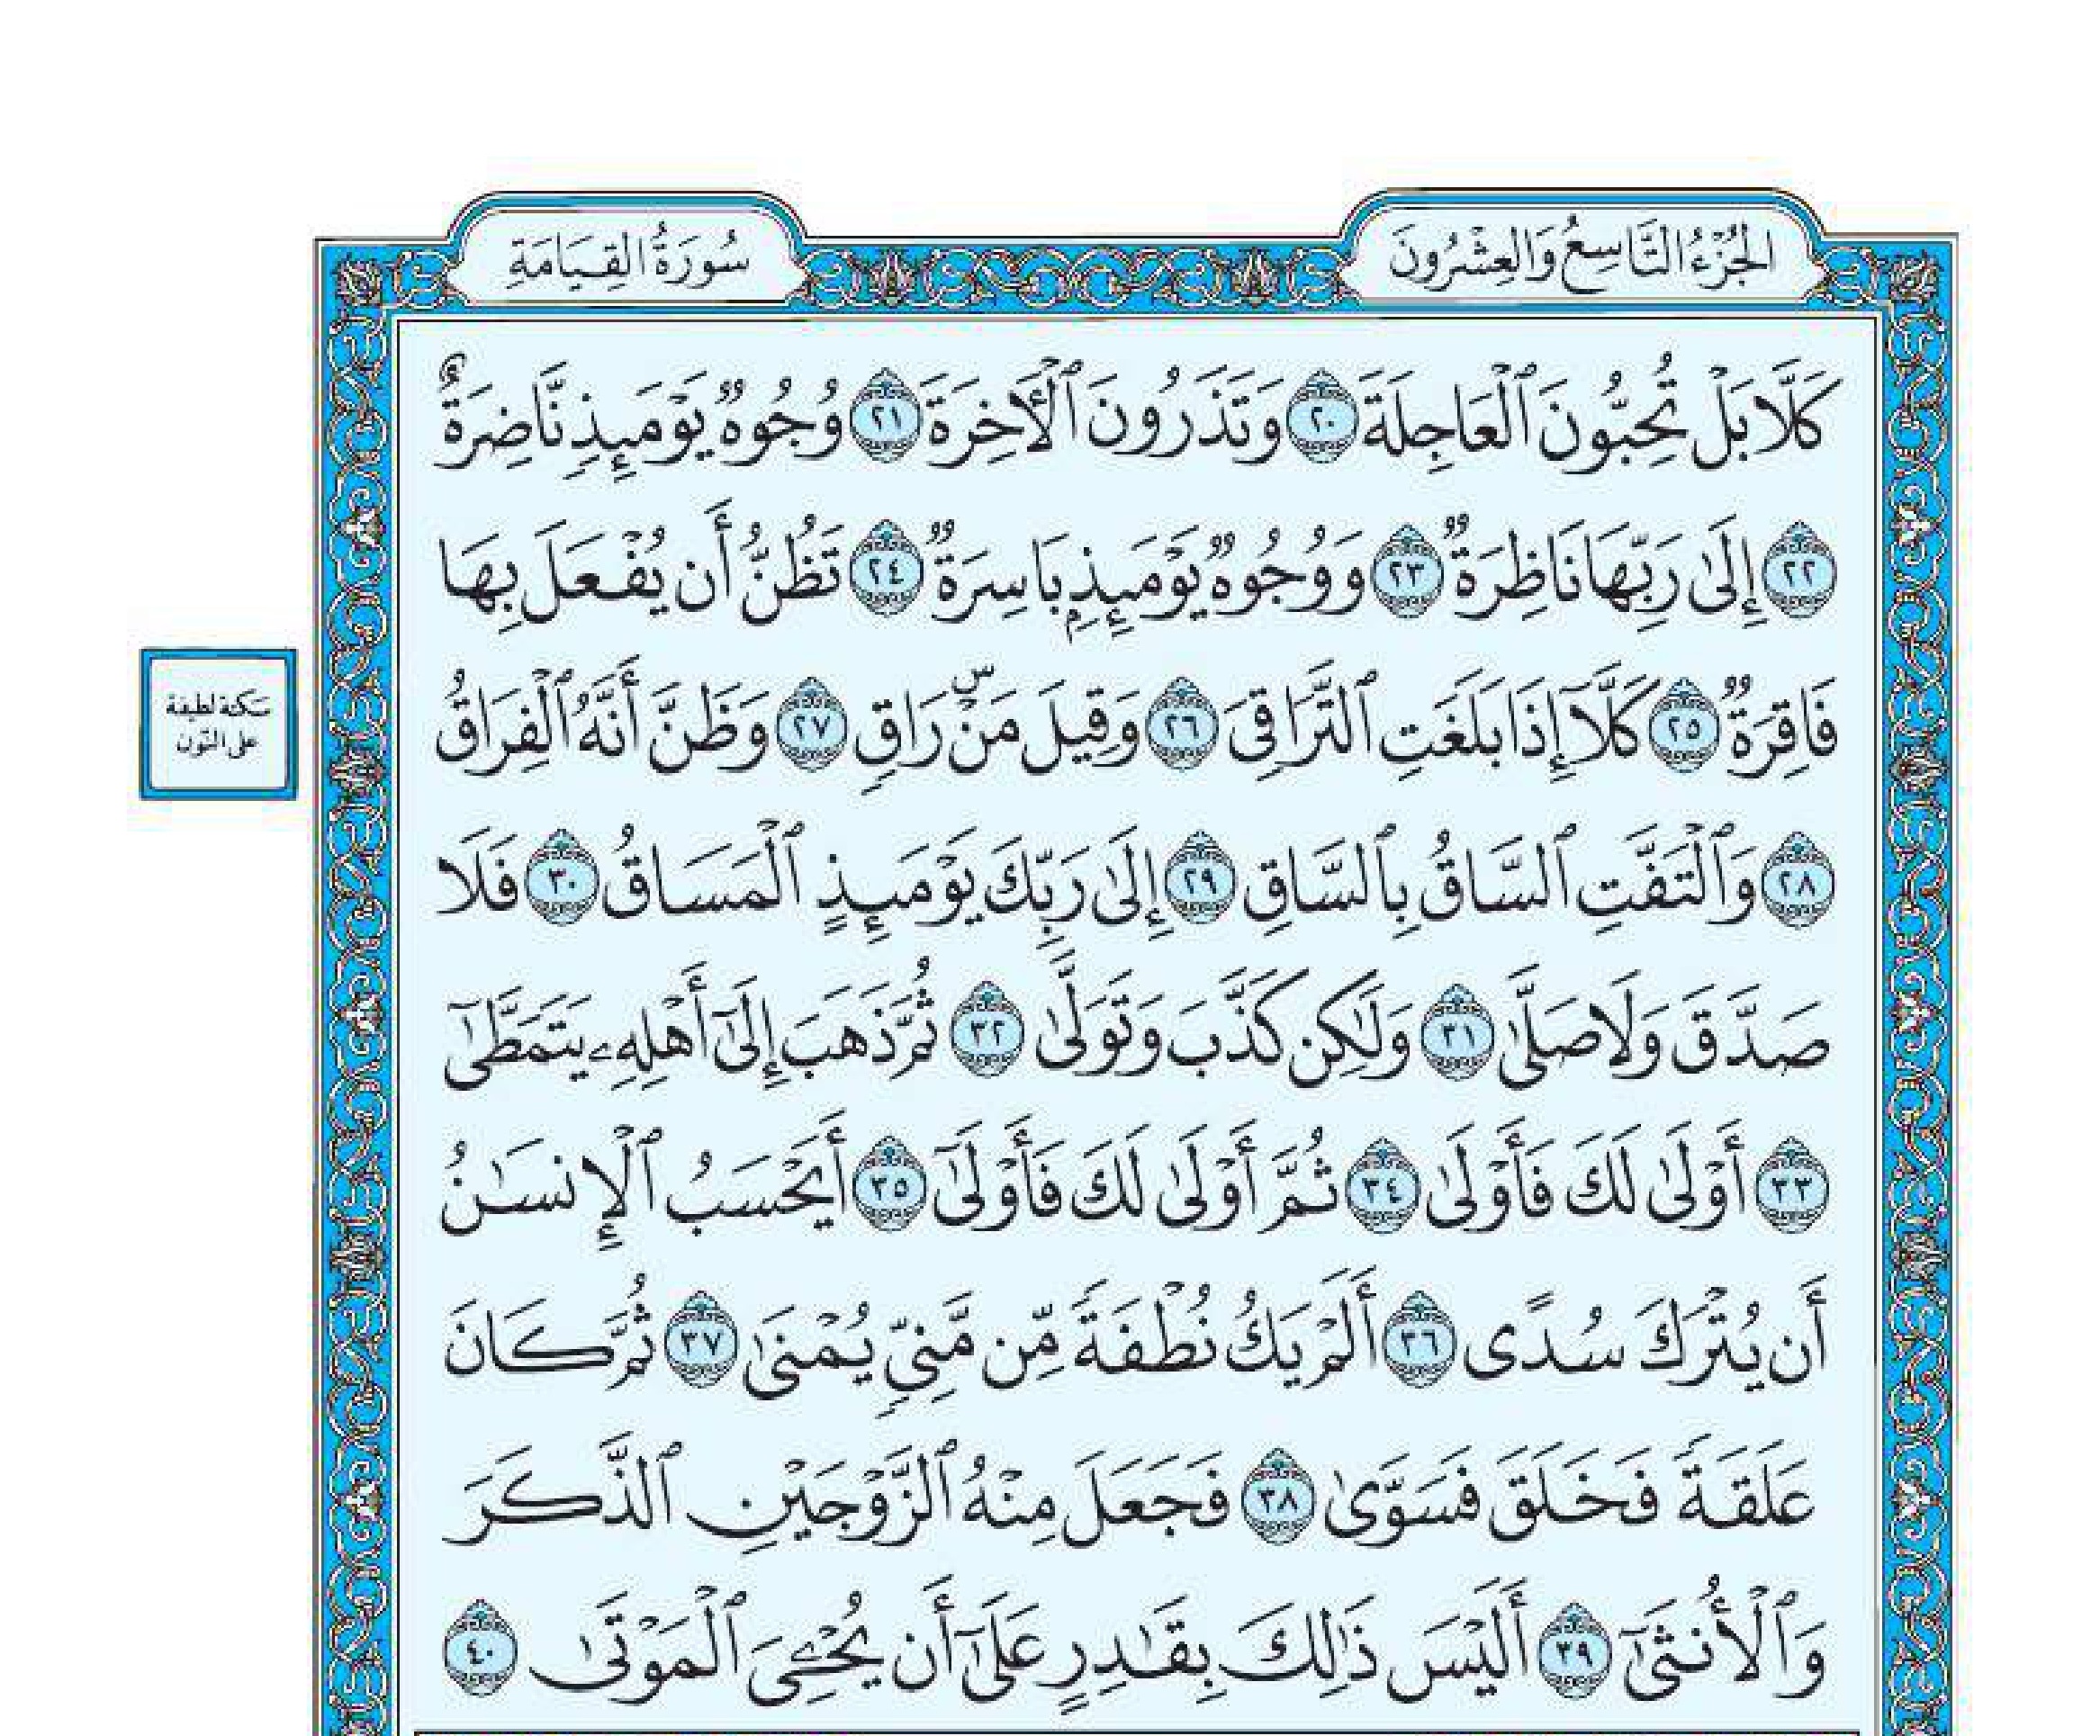 الجُزْءُ التَّاسِعُ وَالعِشْرُونَ
سُورَةُ القِيَامَةِ
كَلَّا بَلْ تُحِبُّونَ ٱلْعَاجِلَةَ ٢٠ وَتَذَرُونَ ٱلْأَخِرَةَ ٢١ وُجُوهٌ يَوْمَئِذٍ نَّاضِرَةٌ
٢٢ إِلَىٰ رَبِّهَا نَاظِرَةٌ ٢٣ وَوُجُوهٌ يَوْمَئِذٍۭ بَاسِرَةٌ ٢٤ تَظُنُّ أَن يُفْعَلَ بِهَا
فَاقِرَةٌ ٢٥ كَلَّآ إِذَا بَلَغَتِ ٱلتَّرَاقِىَ ٢٦ وَقِيلَ مَنْۜ رَاقٍ ٢٧ وَظَنَّ أَنَّهُ ٱلْفِرَاقُ
سكتة لطيفة
على النون
٢٨ وَٱلْتَفَّتِ ٱلسَّاقُ بِٱلسَّاقِ ٢٩ إِلَىٰ رَبِّكَ يَوْمَئِذٍ ٱلْمَسَاقُ ٣٠ فَلَا
صَدَّقَ وَلَا صَلَّىٰ ٣١ وَلَٰكِن كَذَّبَ وَتَوَلَّىٰ ٣٢ ثُمَّ ذَهَبَ إِلَىٰٓ أَهْلِهِۦ يَتَمَطَّىٰٓ
٣٣ أَوْلَىٰ لَكَ فَأَوْلَىٰ ٣٤ ثُمَّ أَوْلَىٰ لَكَ فَأَوْلَىٰٓ ٣٥ أَيَحْسَبُ ٱلْإِنسَٰنُ
أَن يُتْرَكَ سُدًى ٣٦ أَلَمْ يَكُ نُطْفَةً مِّن مَّنِىٍّ يُمْنَىٰ ٣٧ ثُمَّ كَانَ
عَلَقَةً فَخَلَقَ فَسَوَّىٰ ٣٨ فَجَعَلَ مِنْهُ ٱلزَّوْجَيْنِ ٱلذَّكَرَ
وَٱلْأُنثَىٰٓ ٣٩ أَلَيْسَ ذَٰلِكَ بِقَٰدِرٍ عَلَىٰٓ أَن يُحْـِۧىَ ٱلْمَوْتَىٰ ٤٠